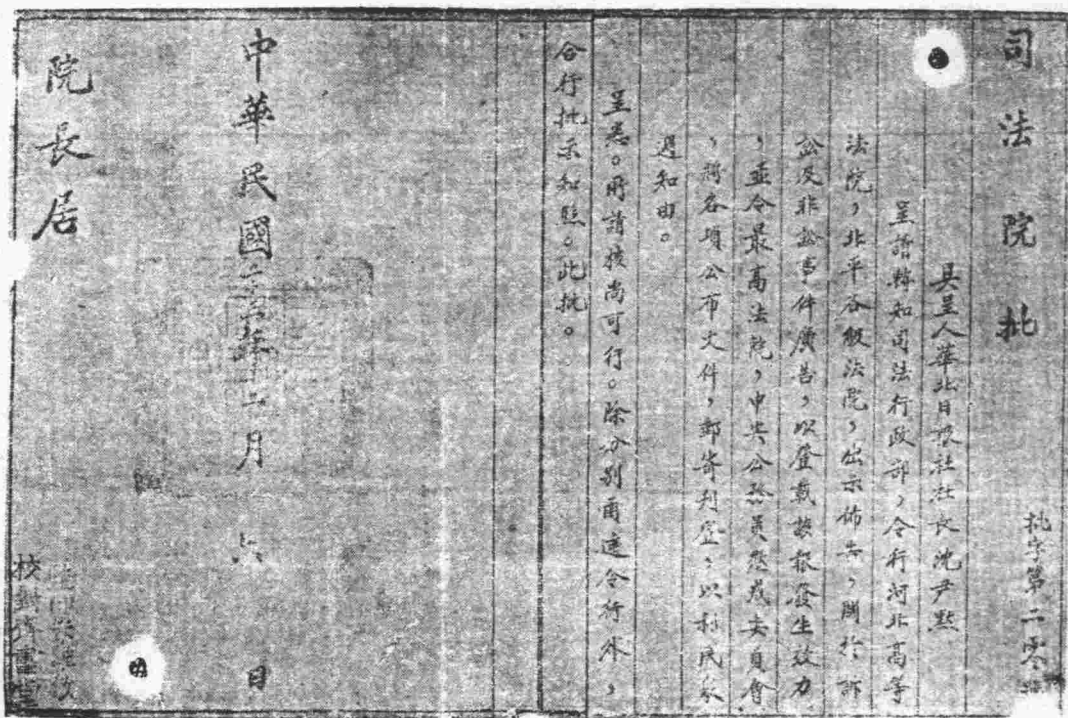 司法院批
批字第二零
具呈人華北日報社社長沈尹默
呈請轉知司法行政部，令行河北高等
法院，北平各級法院，出示佈告，關於訴
訟及非訟事件廣告，以登載該報發生效力
，並令最高法院，中央公務員懲戒委員會
，將各項公布文件，郵寄刊登，以利民眾
週知由。
呈悉。所請核尚可行。除分別函達令行外，
合行批示知照。此批。
中華民國二十 年 二月 六 日
院長居
校對